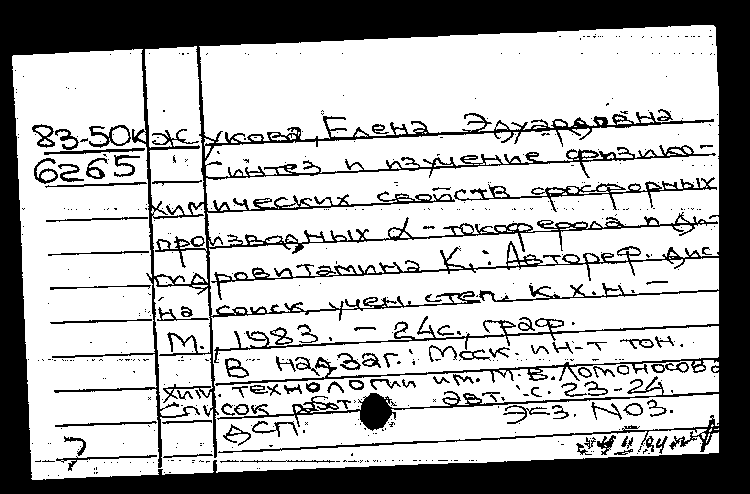 83-50к Жукова, Елена Эдуардовна
6265 Синтез и изучение физико-
химических свойств фосфорных
производных α-токоферола и ди-
гидровитамина К₁: Автореф. дис.
на соиск. учен. степ. к.х.н. –
М., 1983. – 24с., граф.
В надзаг.: Моск. ин-т тон.
хим. технологии им. М.В. Ломоносова
Список работ авт.: с. 23-24.
Э=3. №03.
ДСП.
7